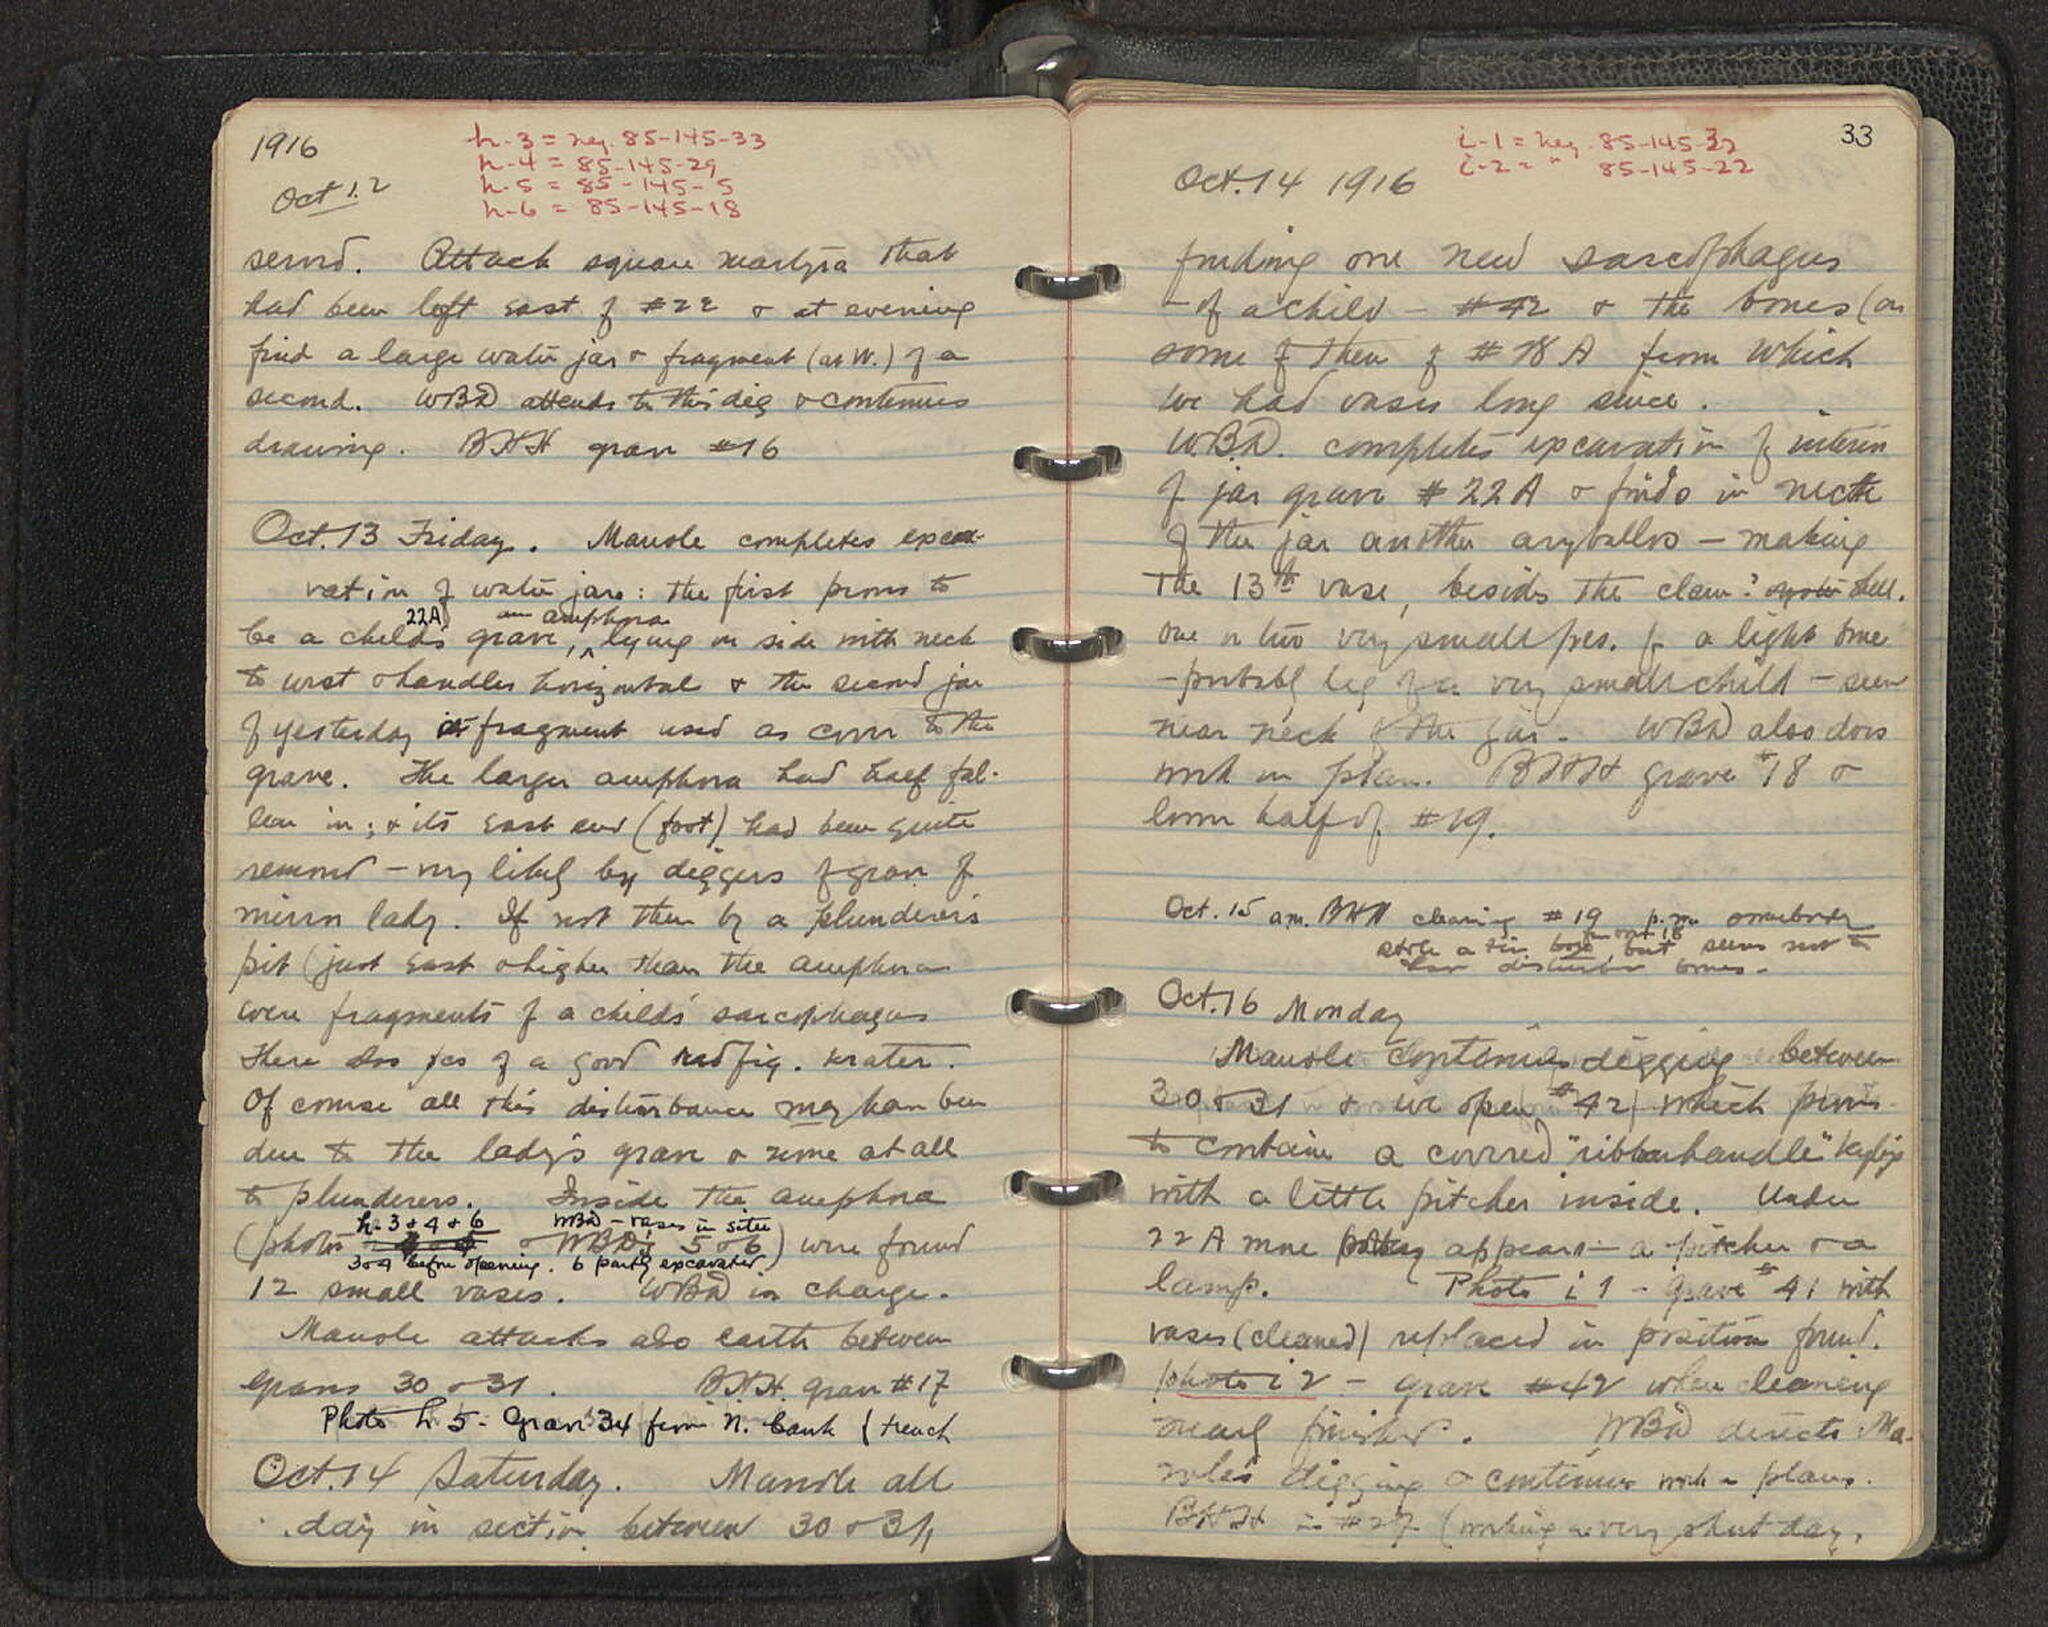 1916
h-3 = neg. 85-145-33
h-4 = 85-145-29
h-5 = 85-145-5
h-6 = 85-145-18
Oct 12
served. Attack square martyra that
had been left east of #22 & at evening
find a large water jar & fragment (as W.) of a
second. WBD attends to this dig & continues
drawing. BHH grave #16
Oct. 13 Friday. Manole completes exca-
vation of water jars: the first proves to
22A) an amphora
be a child's grave, ^ lying on side with neck
to west & handles horizontal & the second jar
of yesterday is fragment used as cover to the
grave. The larger amphora had half fal-
len in; & its east end (foot) had been quite
removed – very likely by diggers of grave of
mirror lady. If not then by a plunderer's
pit (just east & higher than the amphora
were fragments of a child's sarcophagus
there also pcs of a good red fig. krater.
Of course all this disturbance may have been
due to the lady's grave & none at all
to plunderers. Inside the amphora
h-3 & 4 & 6 WBD – vases in situ
(photos & WBD's 5 & 6) were found
3 & 4 before opening. 6 partly excavated
12 small vases. WBD in charge.
Manole attacks also earth between
graves 30 & 31. BHH. grave #17
Photo h 5 - Grave 34 from N. bank of trench
Oct. 14 Saturday. Manole all
day in section between 30 & 31,
33
i-1 = neg. 85-145-32
i-2 = " 85-145-22
Oct. 14 1916
finding one new sarcophagus
– of a child – #42 & the bones (or
some of them of #18A from which
we had vases long since.
W.B.D. completes excavation of interior
of jar grave #22A & finds in neck
of the jar another aryballos – making
the 13th vase, besides the clam? oyster shell.
one or two very small pcs. of a light bone
– probably leg of a very small child – seen
near neck of the jar. WBD also does
work on plan. BHH grave #18 &
lower half of #19.
Oct. 15 a.m. BHH cleaning #19 p.m. somebody
stole a tin box from out 18 but seems not to
have disturbed bones.
Oct. 16 Monday
Manole continues digging between
30 & 31 & we open #42 which proves
to contain a covered "ribbon handle" kylix
with a little pitcher inside. Under
22A more pottery appears – a pitcher & a
lamp. Photo i 1 - Grave #41 with
vases (cleaned) replaced in position found.
photo i 2 – grave #42 when cleaning
nearly finished. WBD directs Ma-
nole's digging & continues work on plans.
BHH in #27 (making a very short day.